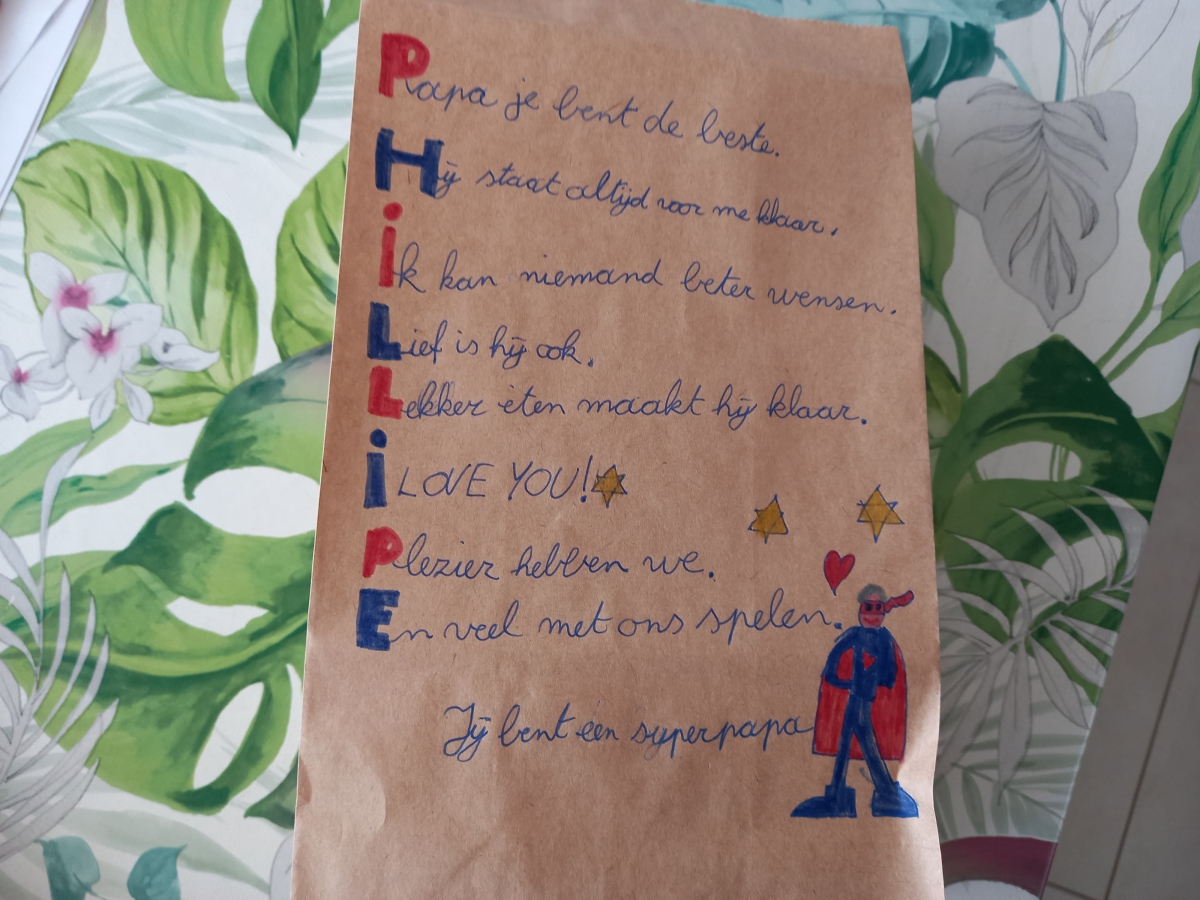 Papa je bent de beste.
Hij staat altijd voor me klaar.
ik kan niemand beter wensen.
Lief is hij ook.
Lekker eten maakt hij klaar.
i LOVE YOU!
Plezier hebben we.
En veel met ons spelen.
Jij bent één superpapa